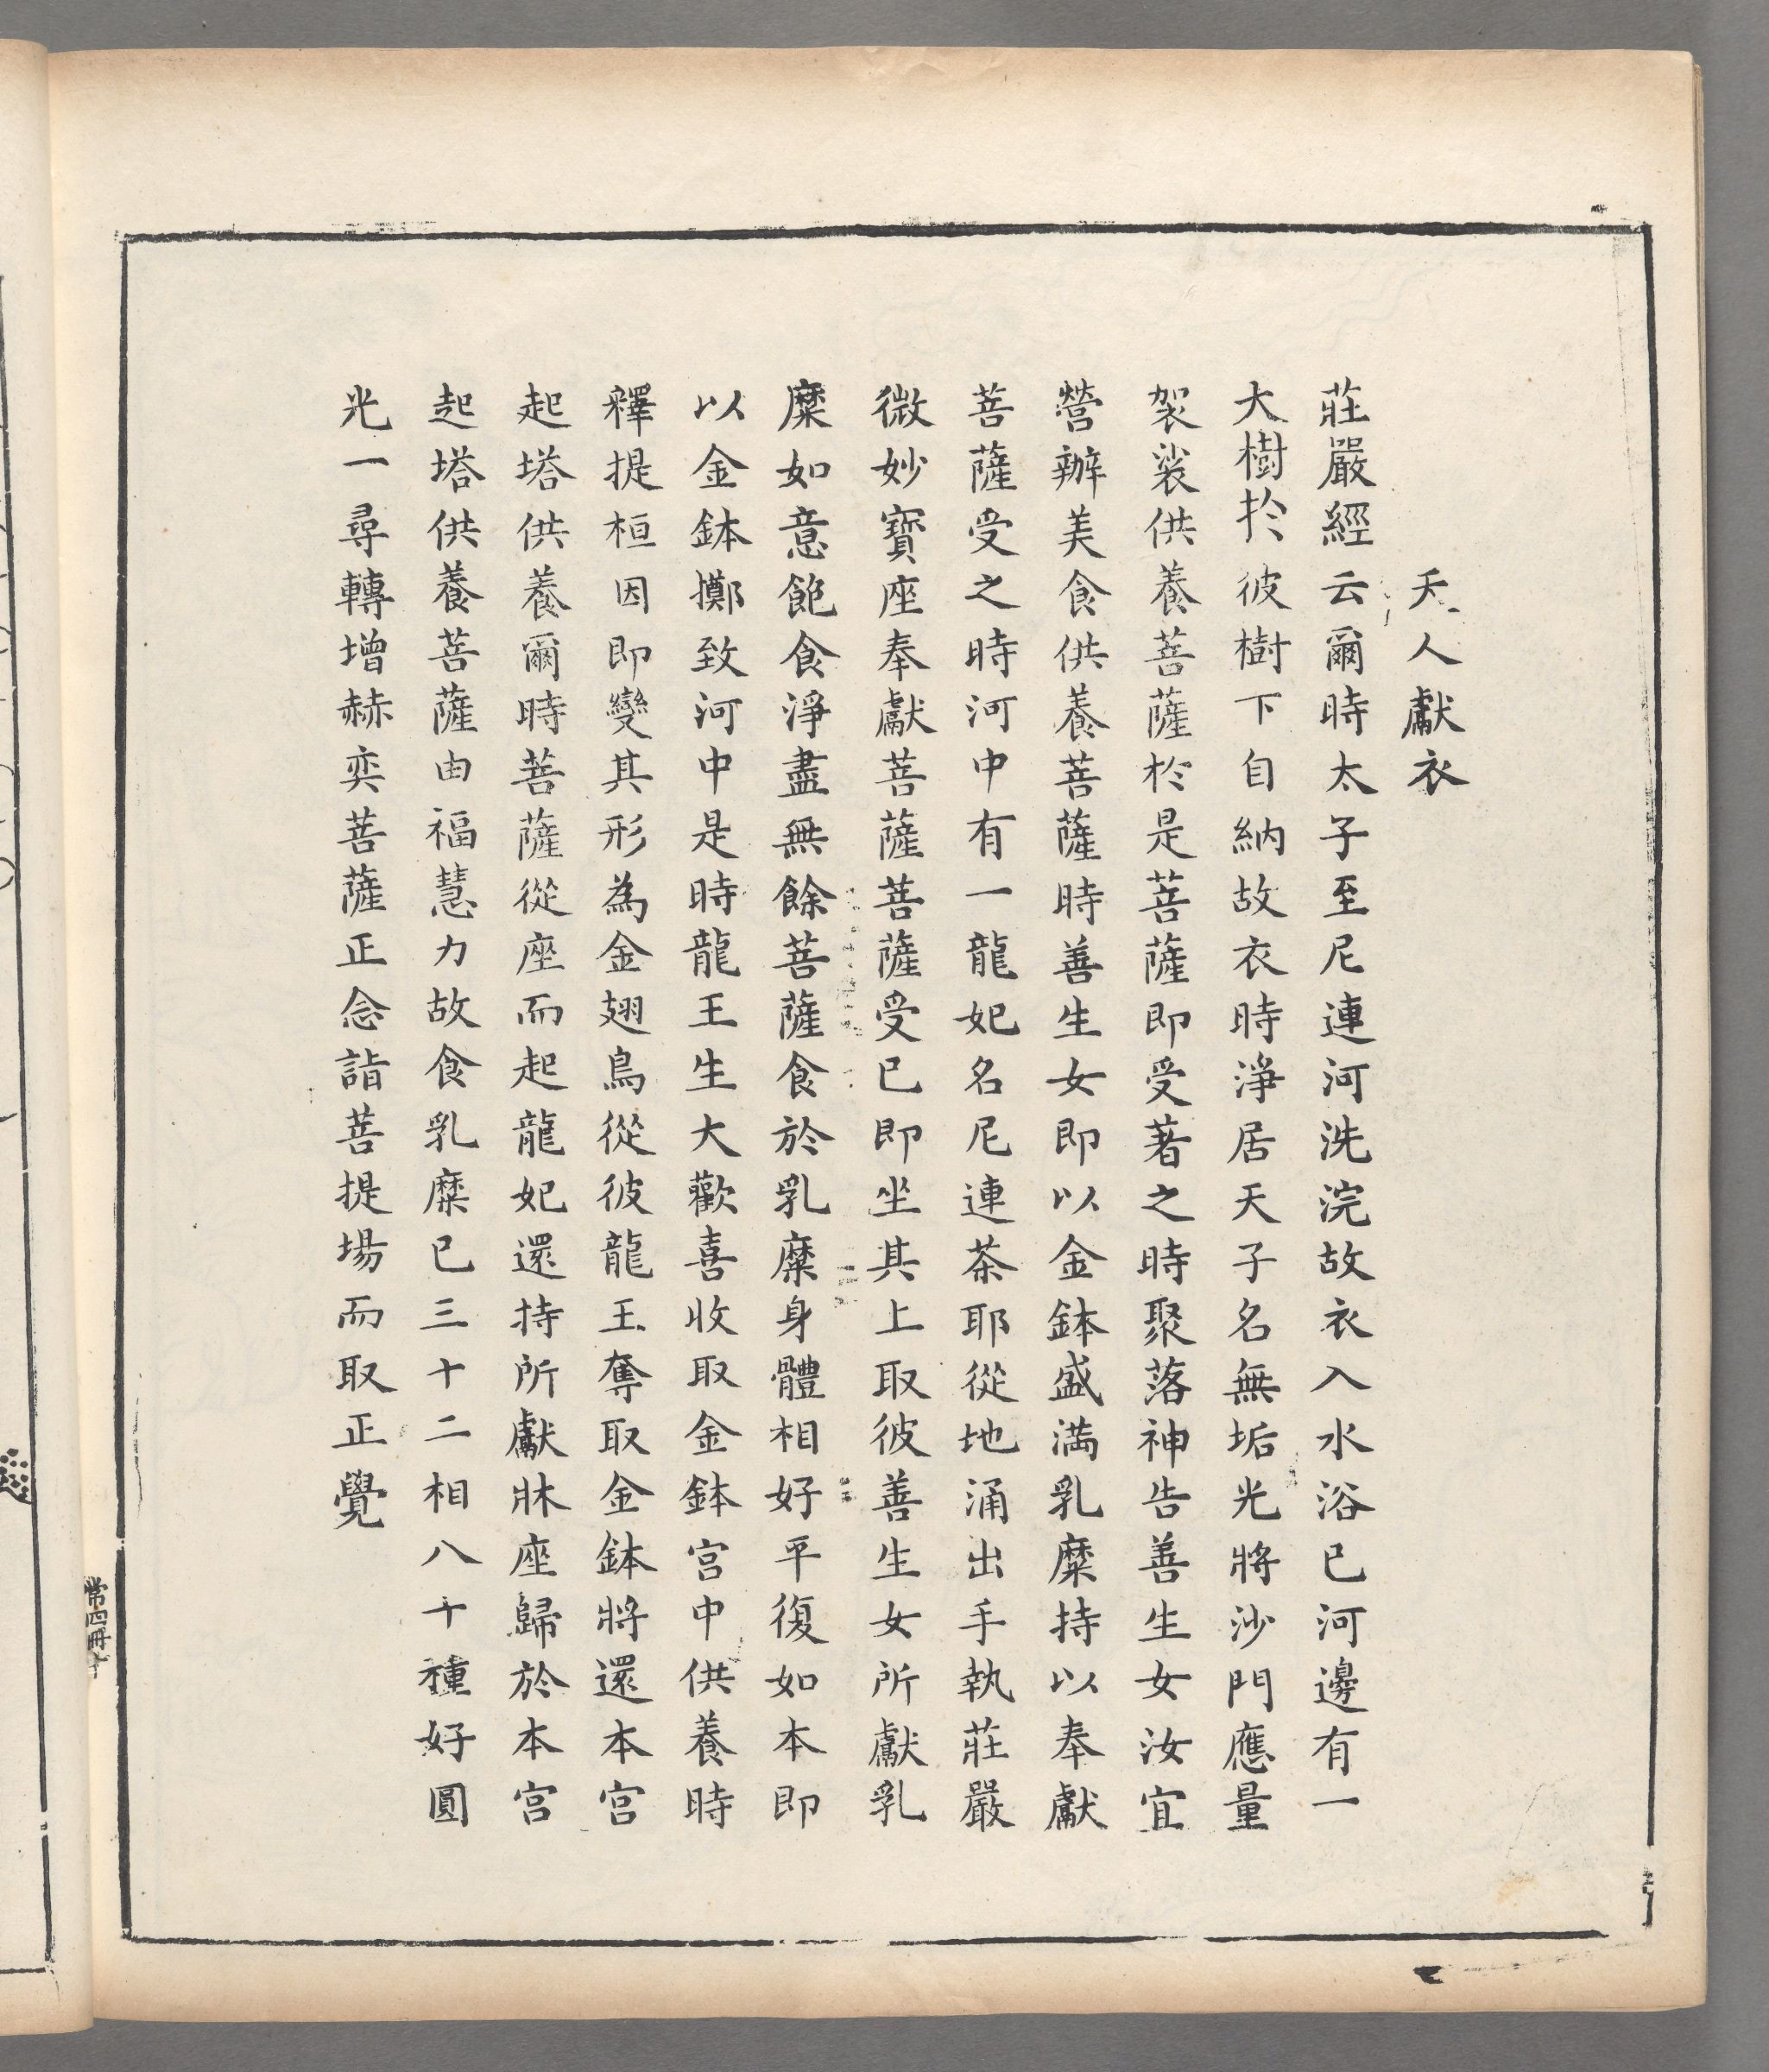 天人獻衣
莊嚴經云爾時太子至尼連河洗浣故衣入水浴已河邊有一
大樹於彼樹下自納故衣時淨居天子名無垢光將沙門應量
袈裟供養菩薩於是菩薩即受著之時聚落神告善生女汝宜
營辦美食供養菩薩時善生女即以金鉢盛滿乳糜持以奉獻
菩薩受之時河中有一龍妃名尼連茶耶從地涌出手執莊嚴
微妙寶座奉獻菩薩菩薩受已即坐其上取彼善生女所獻乳
糜如意飽食淨盡無餘菩薩食於乳糜身體相好平復如本即
以金鉢擲致河中是時龍王生大歡喜收取金鉢宮中供養時
釋提桓因即變其形為金翅鳥從彼龍王奪取金鉢將還本宮
起塔供養爾時菩薩從座而起龍妃還持所獻牀座歸於本宮
起塔供養菩薩由福慧力故食乳糜已三十二相八十種好圓
光一尋轉增赫奕菩薩正念詣菩提場而取正覺
常四冊十